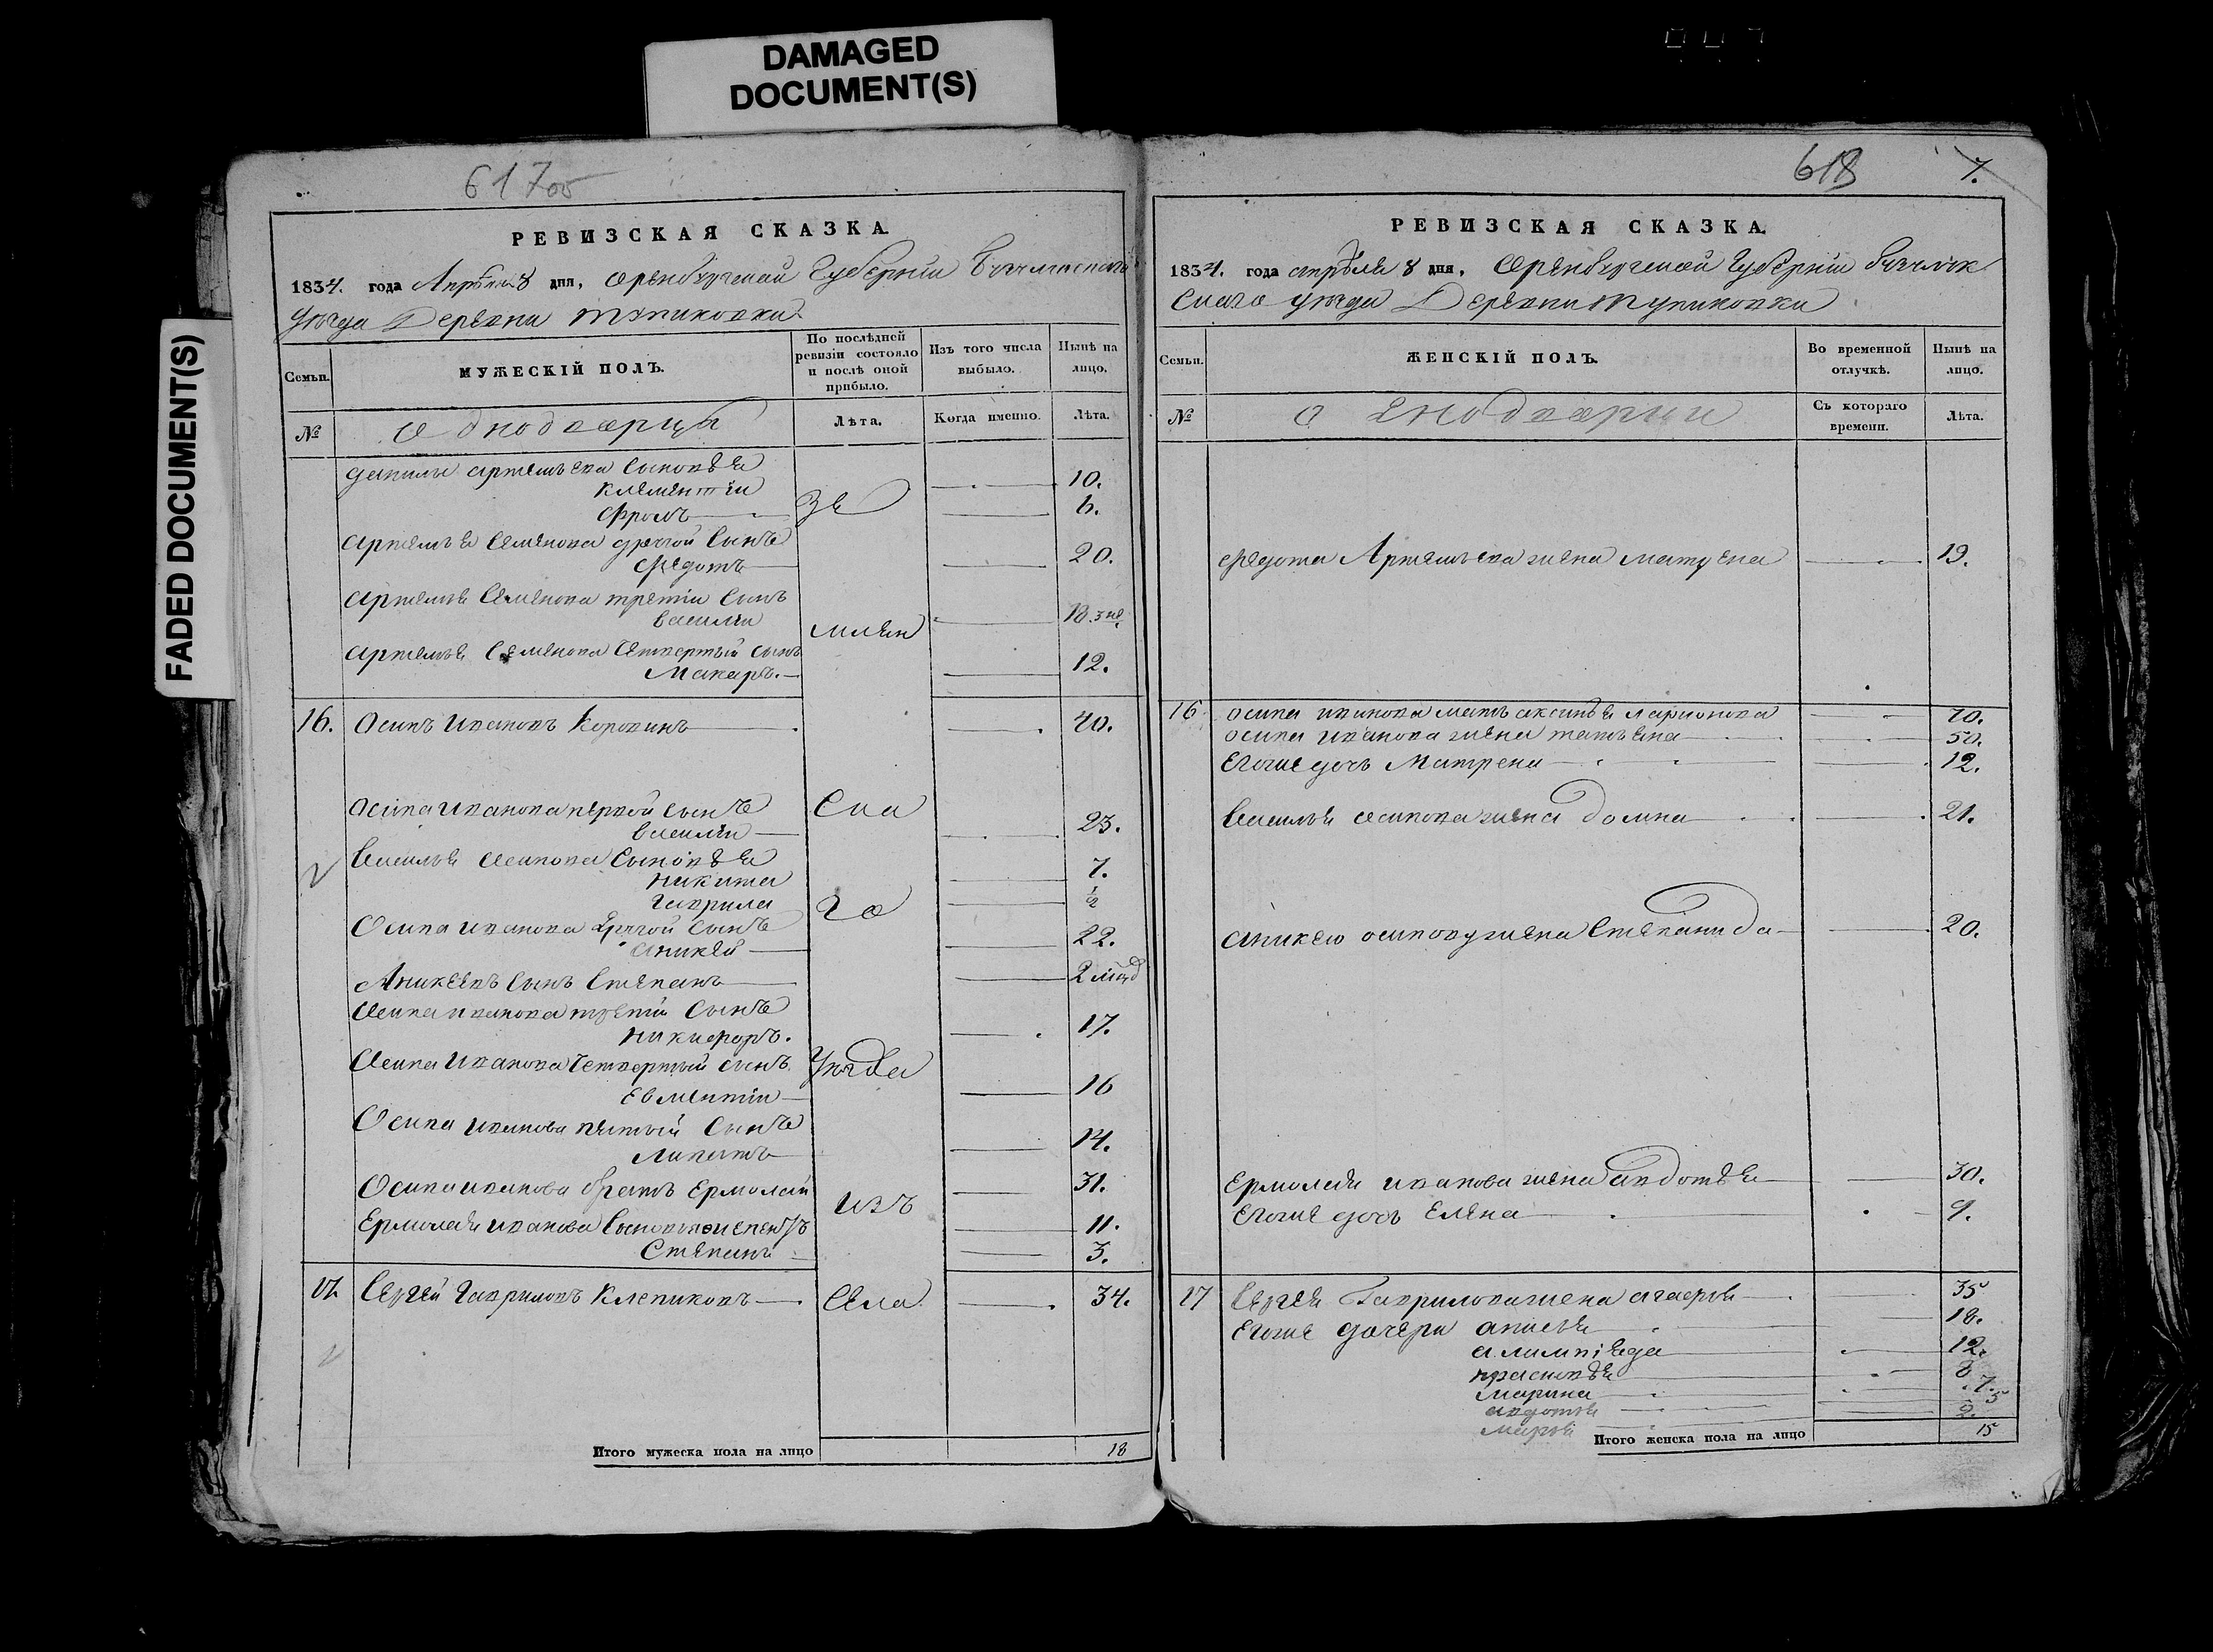 DAMAGED
DOCUMENT(S)
FADED DOCUMENT(S)
617 об
РЕВИЗСКАЯ СКАЗКА.
1834. года Апрѣля 8 дня, Оренбургской Губерніи
уѣзда Деревни Тупиковки
Семьи.
МУЖЕСКІЙ ПОЛЪ.
По послѣдней ревизіи состояло и послѣ оной прибыло.
Изъ того числа выбыло.
Нынѣ на лицо.
№
Однодворцы
Лѣта.
Когда именно.
Лѣта.
Данилы Артемьева сыновья
Клементіи 10.
Фролъ 6.
Артемья Семенова другой сынъ
Федотъ 20.
Артемья Семенова третіи сынъ
Василіи 18
Артемья Семенова четвертый сынъ
Макаръ. 12.
16. Осипъ Ивановъ Коровинъ 40.
Осипа Иванова первой сынъ
Василіи 23.
Василья Осипова сыновья
Никита 7.
Гаврила ½
Осипа Иванова другой сынъ
Аникей 22.
Аникеевъ сынъ Степанъ 2
Осипа Иванова третіи сынъ
Никифоръ. 17.
Осипа Иванова четвертый сынъ уѣзда
Евментіи 16
Осипа Иванова пятый сынъ
Липатъ 14.
Осипа Иванова братъ Ермолай изъ 31.
Ермолая Иванова 11.
Степанъ 3.
17. Сергей Гавриловъ Клепиковъ села 34.
Итого мужеска пола на лицо 18
618 7.
РЕВИЗСКАЯ СКАЗКА.
1834. года апрѣля 8 дня, Оренбургской Губерніи
скаго уѣзда Деревни Тупиковки
Семьи.
ЖЕНСКІЙ ПОЛЪ.
Во временной отлучкѣ.
Нынѣ на лицо.
№
Съ котораго времени.
Лѣта.
Федота Артемьева жена Матрена 19.
16 Осипа Иванова мать Аксинья Ларионова 70.
Осипа Иванова жена Татьяна 50.
Егоже дочь Матрена 12.
Василья Осипова жена Домна 21.
Аникею Осипову жена Степанида 20.
Ермолая Иванова жена Авдотья 30.
Егоже дочь Елена 9.
17 Сергея Гаврилова жена Агафья 35
Егоже дочери Анисья 18.
Алимпіяда 12.
Прасковья 8
Марина 7.
Авдотья 5
Марфа 2.
Итого женска пола на лицо 15